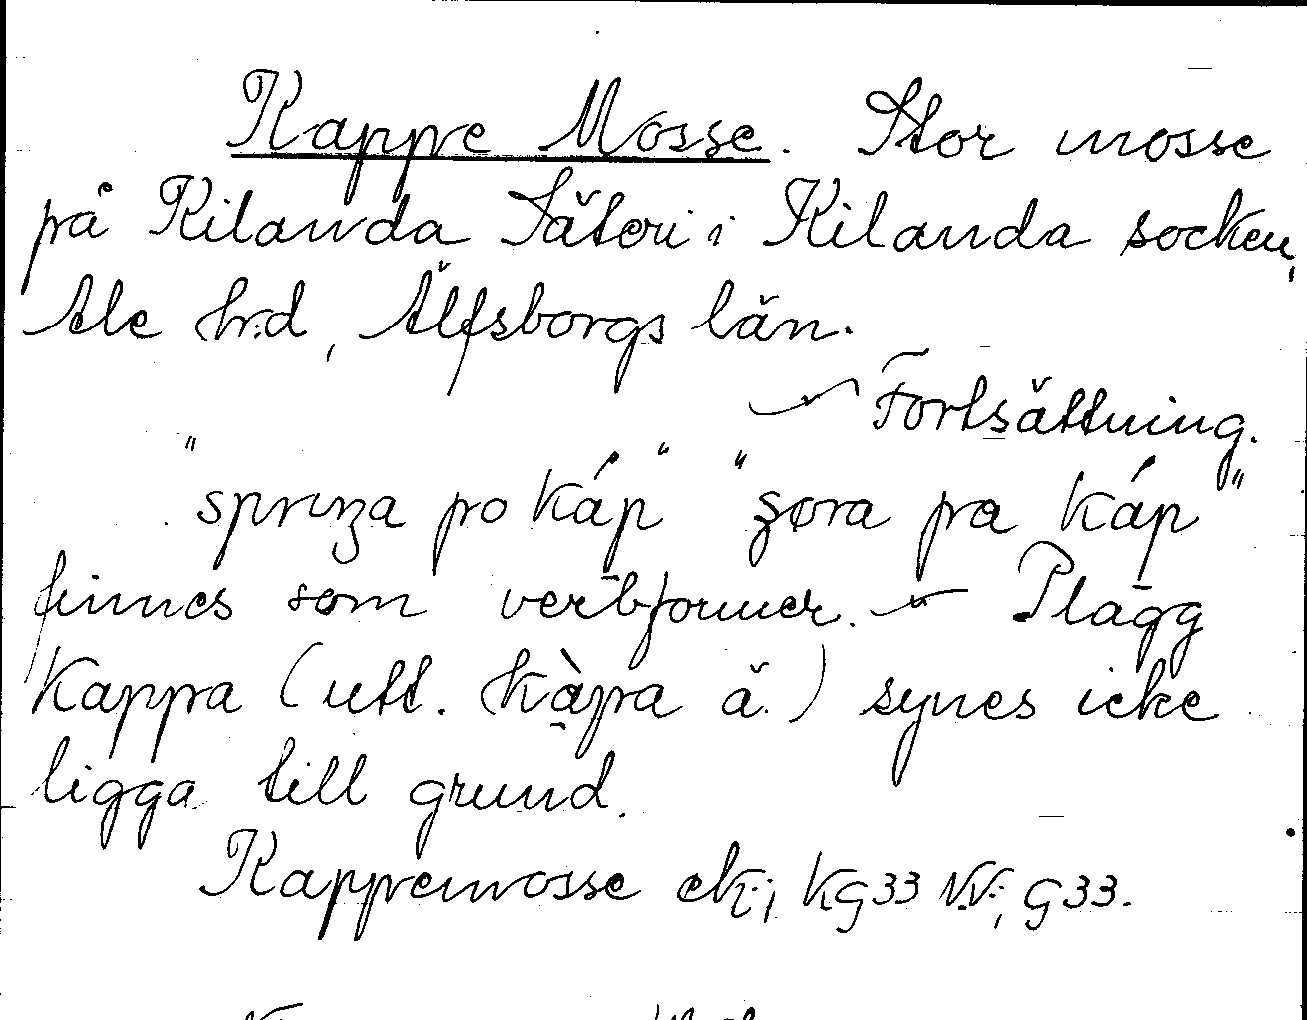 Kappe Mosse. Stor mosse
på Kilanda Säteri i Kilanda socken,
Ale hrd, Älfsborgs län.
Fortsättning.
"spriŋa po káp" "ʒøra pa káp"
finnes som verbformer. – Plagg
Kappa (utt. kàpa ä.) synes icke
ligga till grund.
Kappemosse ek; KG33 NV; G33.